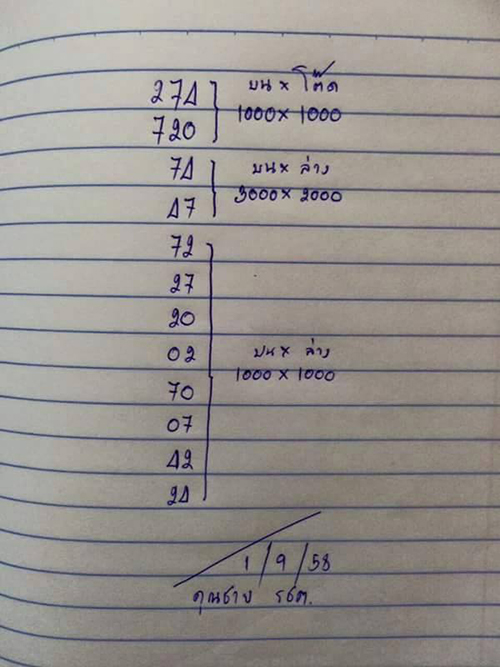 274 } บน x โต๊ด
720 } 1000 x 1000
74 } บน x ล่าง
47 } 3000 x 2000
72
27
20
02 บน x ล่าง
1000 x 1000
70
07
42
24
1/9/58
คุณชาย รชต.